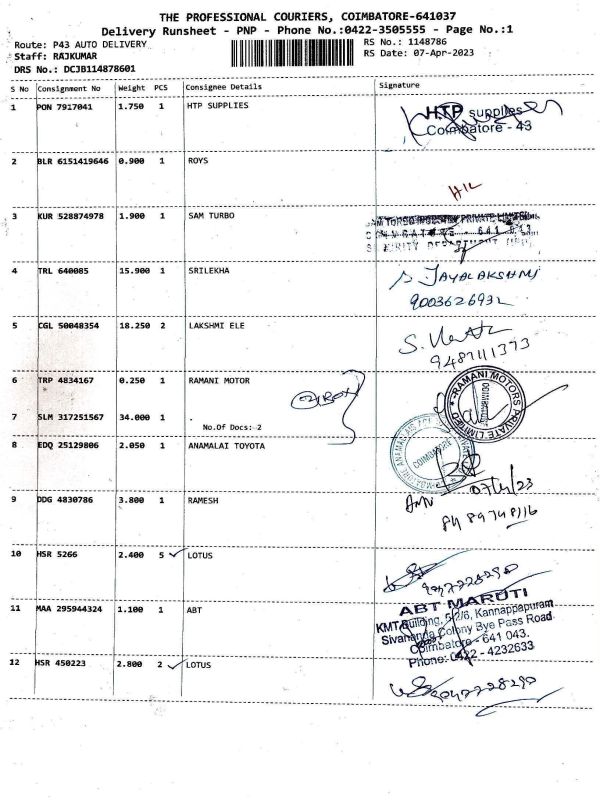 THE PROFESSIONAL COURIERS, COIMBATORE-641037
Delivery Runsheet - PNP - Phone No.:0422-3505555 - Page No.:1
Route: P43 AUTO DELIVERY RS No.: 1148786
Staff: RAJKUMAR RS Date: 07-Apr-2023
DRS No.: DCJB114878601
S No Consignment No Weight PCS Consignee Details Signature
1 PON 7917041 1.750 1 HTP SUPPLIES
HTP supplies
Coimbatore - 43
2 BLR 6151419646 0.900 1 ROYS
3 KUR 528874978 1.900 1 SAM TURBO
4 TRL 640085 15.900 1 SRILEKHA
S. JAYALAKSHMI
9003626932
5 CGL 50048354 18.250 2 LAKSHMI ELE
9487111373
6 TRP 4834167 0.250 1 RAMANI MOTOR
RAMANI MOTORS PRIVATE LIMITED
COIMBATORE
7 SLM 317251567 34.000 1 .
No.Of Docs:-2
8 EDQ 25129806 2.050 1 ANAMALAI TOYOTA
COIMBATORE
9 DDG 4830786 3.800 1 RAMESH
10 HSR 5266 2.400 5 LOTUS
11 MAA 295944324 1.100 1 ABT
ABT MARUTI
KMT Building, 5/2/6, Kannappapuram
Sivananda Colony Bye Pass Road
Coimbatore - 641 043.
Phone: 0422 - 4232633
12 HSR 450223 2.800 2 LOTUS